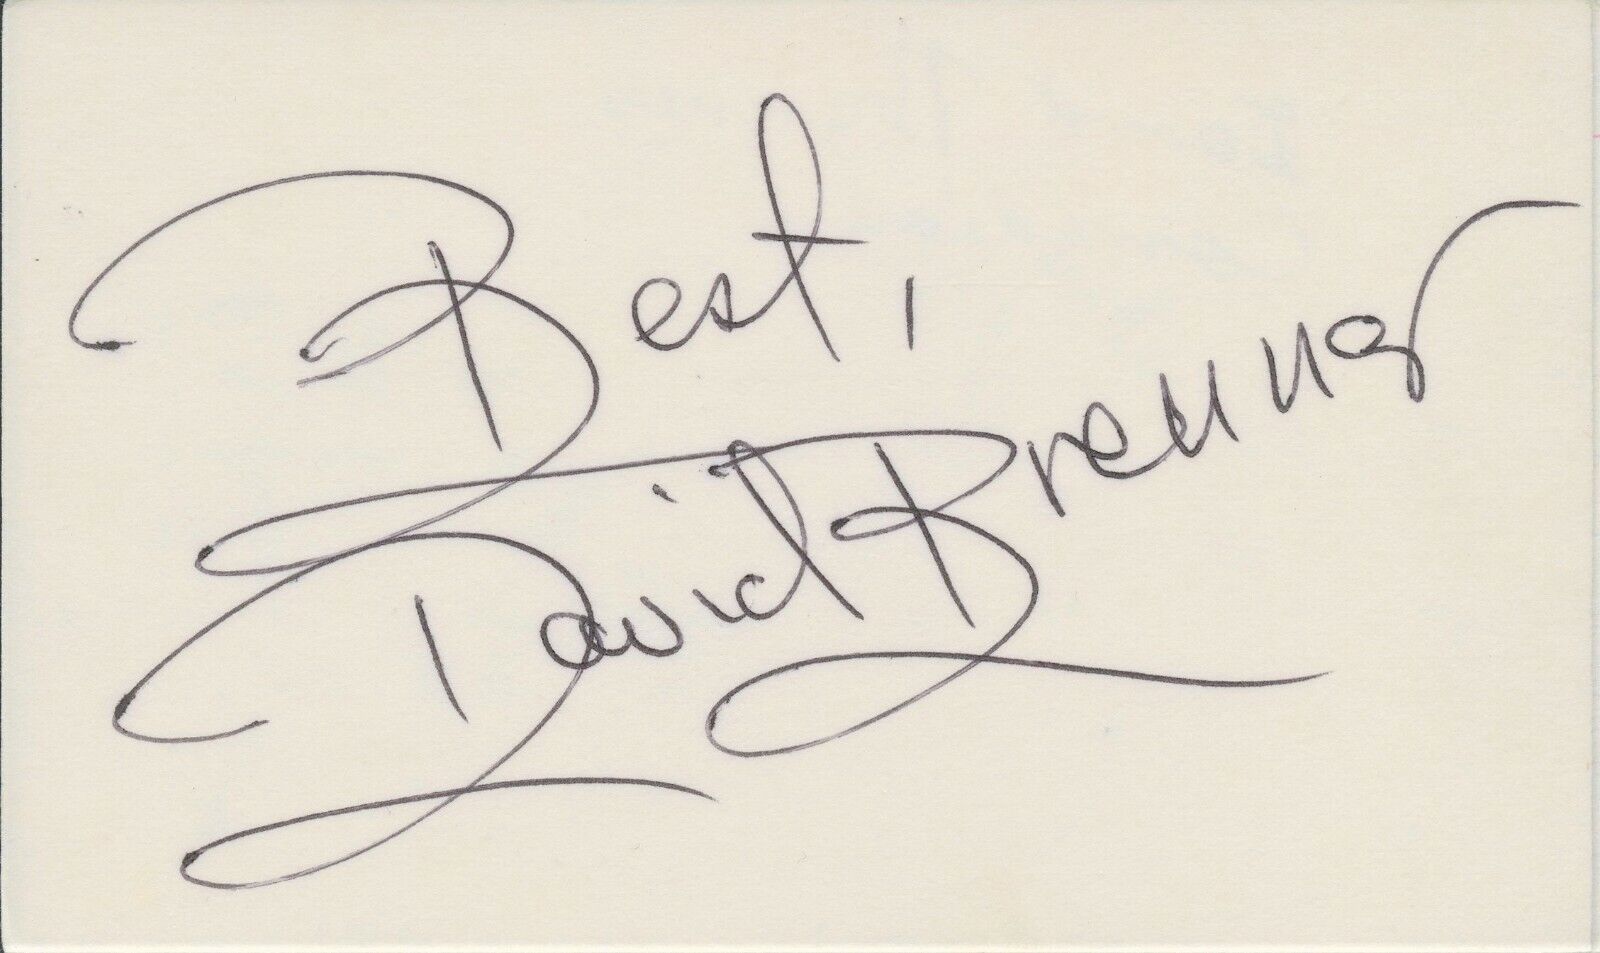 Best,
David Brenner